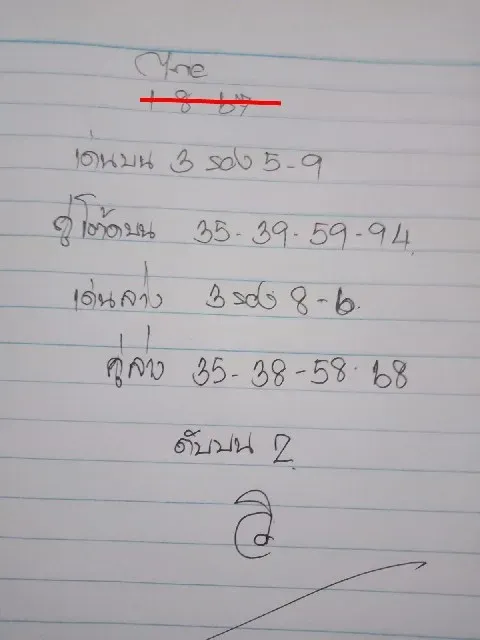 ไทย
1 8 67
เด่นบน 3 รอง 5-9
คู่โต๊ดบน 35-39-59-94
เด่นล่าง 3 รอง 8-6
คู่ล่าง 35-38-58-68
ดับบน 2